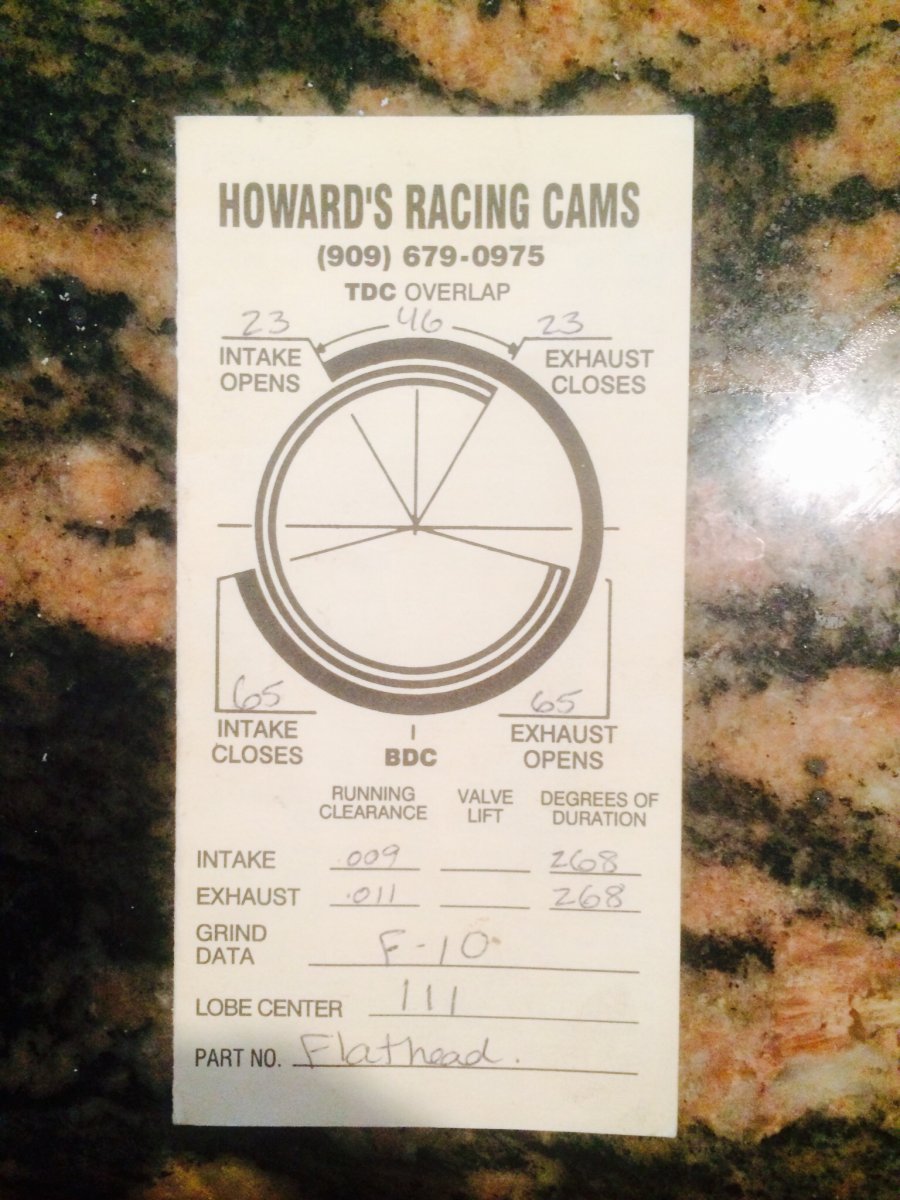 HOWARD'S RACING CAMS
(909) 679-0975
TDC OVERLAP
23 46 23
INTAKE OPENS
EXHAUST CLOSES
65 65
INTAKE CLOSES
BDC
EXHAUST OPENS
RUNNING CLEARANCE
VALVE LIFT
DEGREES OF DURATION
INTAKE .009 268
EXHAUST .011 268
GRIND DATA F-10
LOBE CENTER 111
PART NO. Flathead.